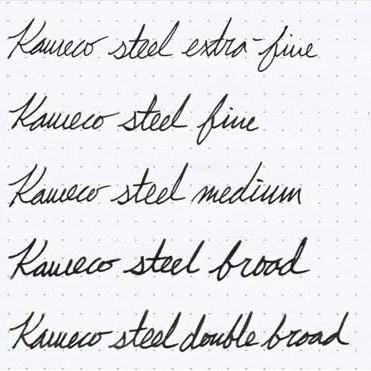 Kaweco steel extra-fine
Kaweco steel fine
Kaweco steel medium
Kaweco steel broad
Kaweco steel double broad